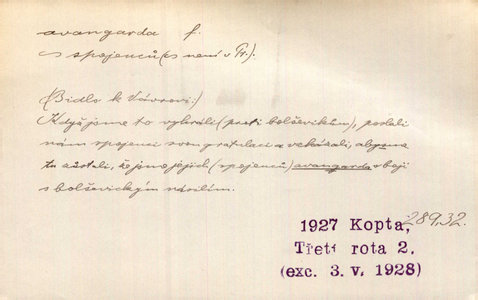 avangarda f.
~ spojenců (~ není v Tr.).
(Bidlo k Vávrovi:)
Když jsme to vyhráli (proti bolševikům), poslali
nám spojenci svou gratulaci a vzkázali, abysme
tu zůstali, že jsme jejich (spojenců) avangarda v boji
s bolševickým násilím.
289,32.
1927 Kopta,
Třetí rota 2.
(exc. 3. v. 1928)